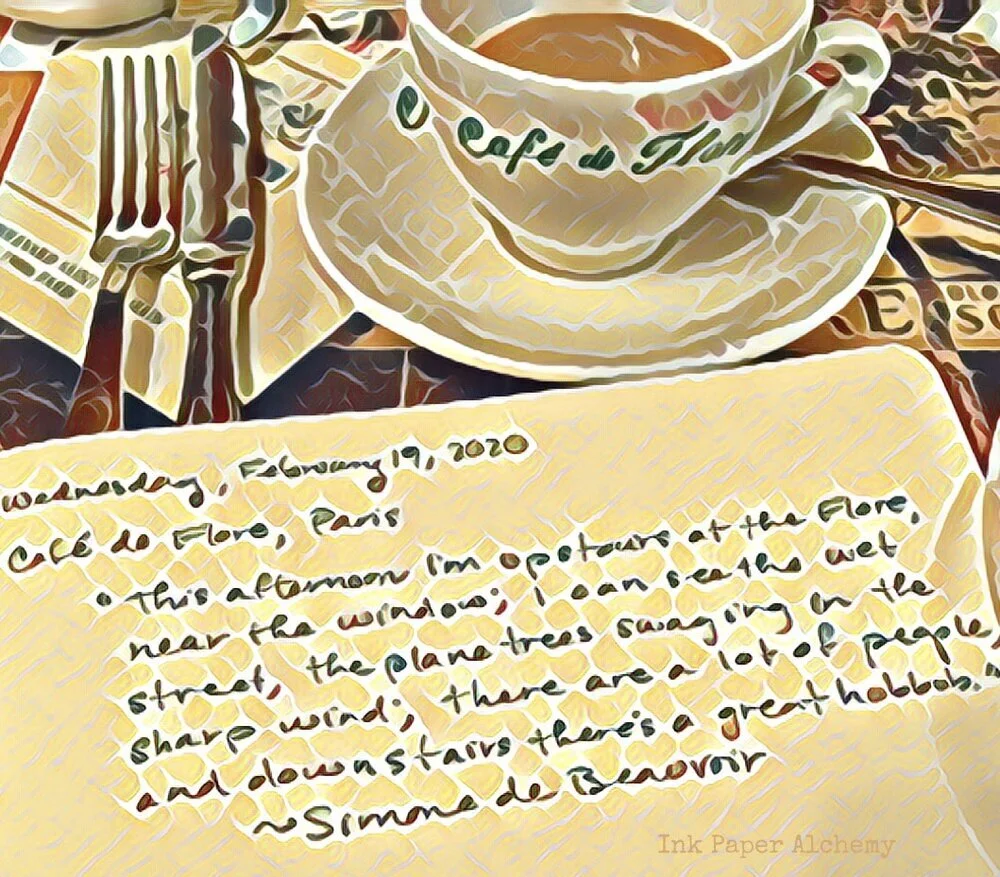 Café de Flor
Wednesday, February 19, 2020
Café de Flore, Paris
"This afternoon I'm upstairs at the Flore,
near the window; I can see the wet
street, the plane trees swaying in the
sharp wind; there are a lot of people
and downstairs there's a great hobbob."
~Simone de Beauvoir
Ink Paper Alchemy